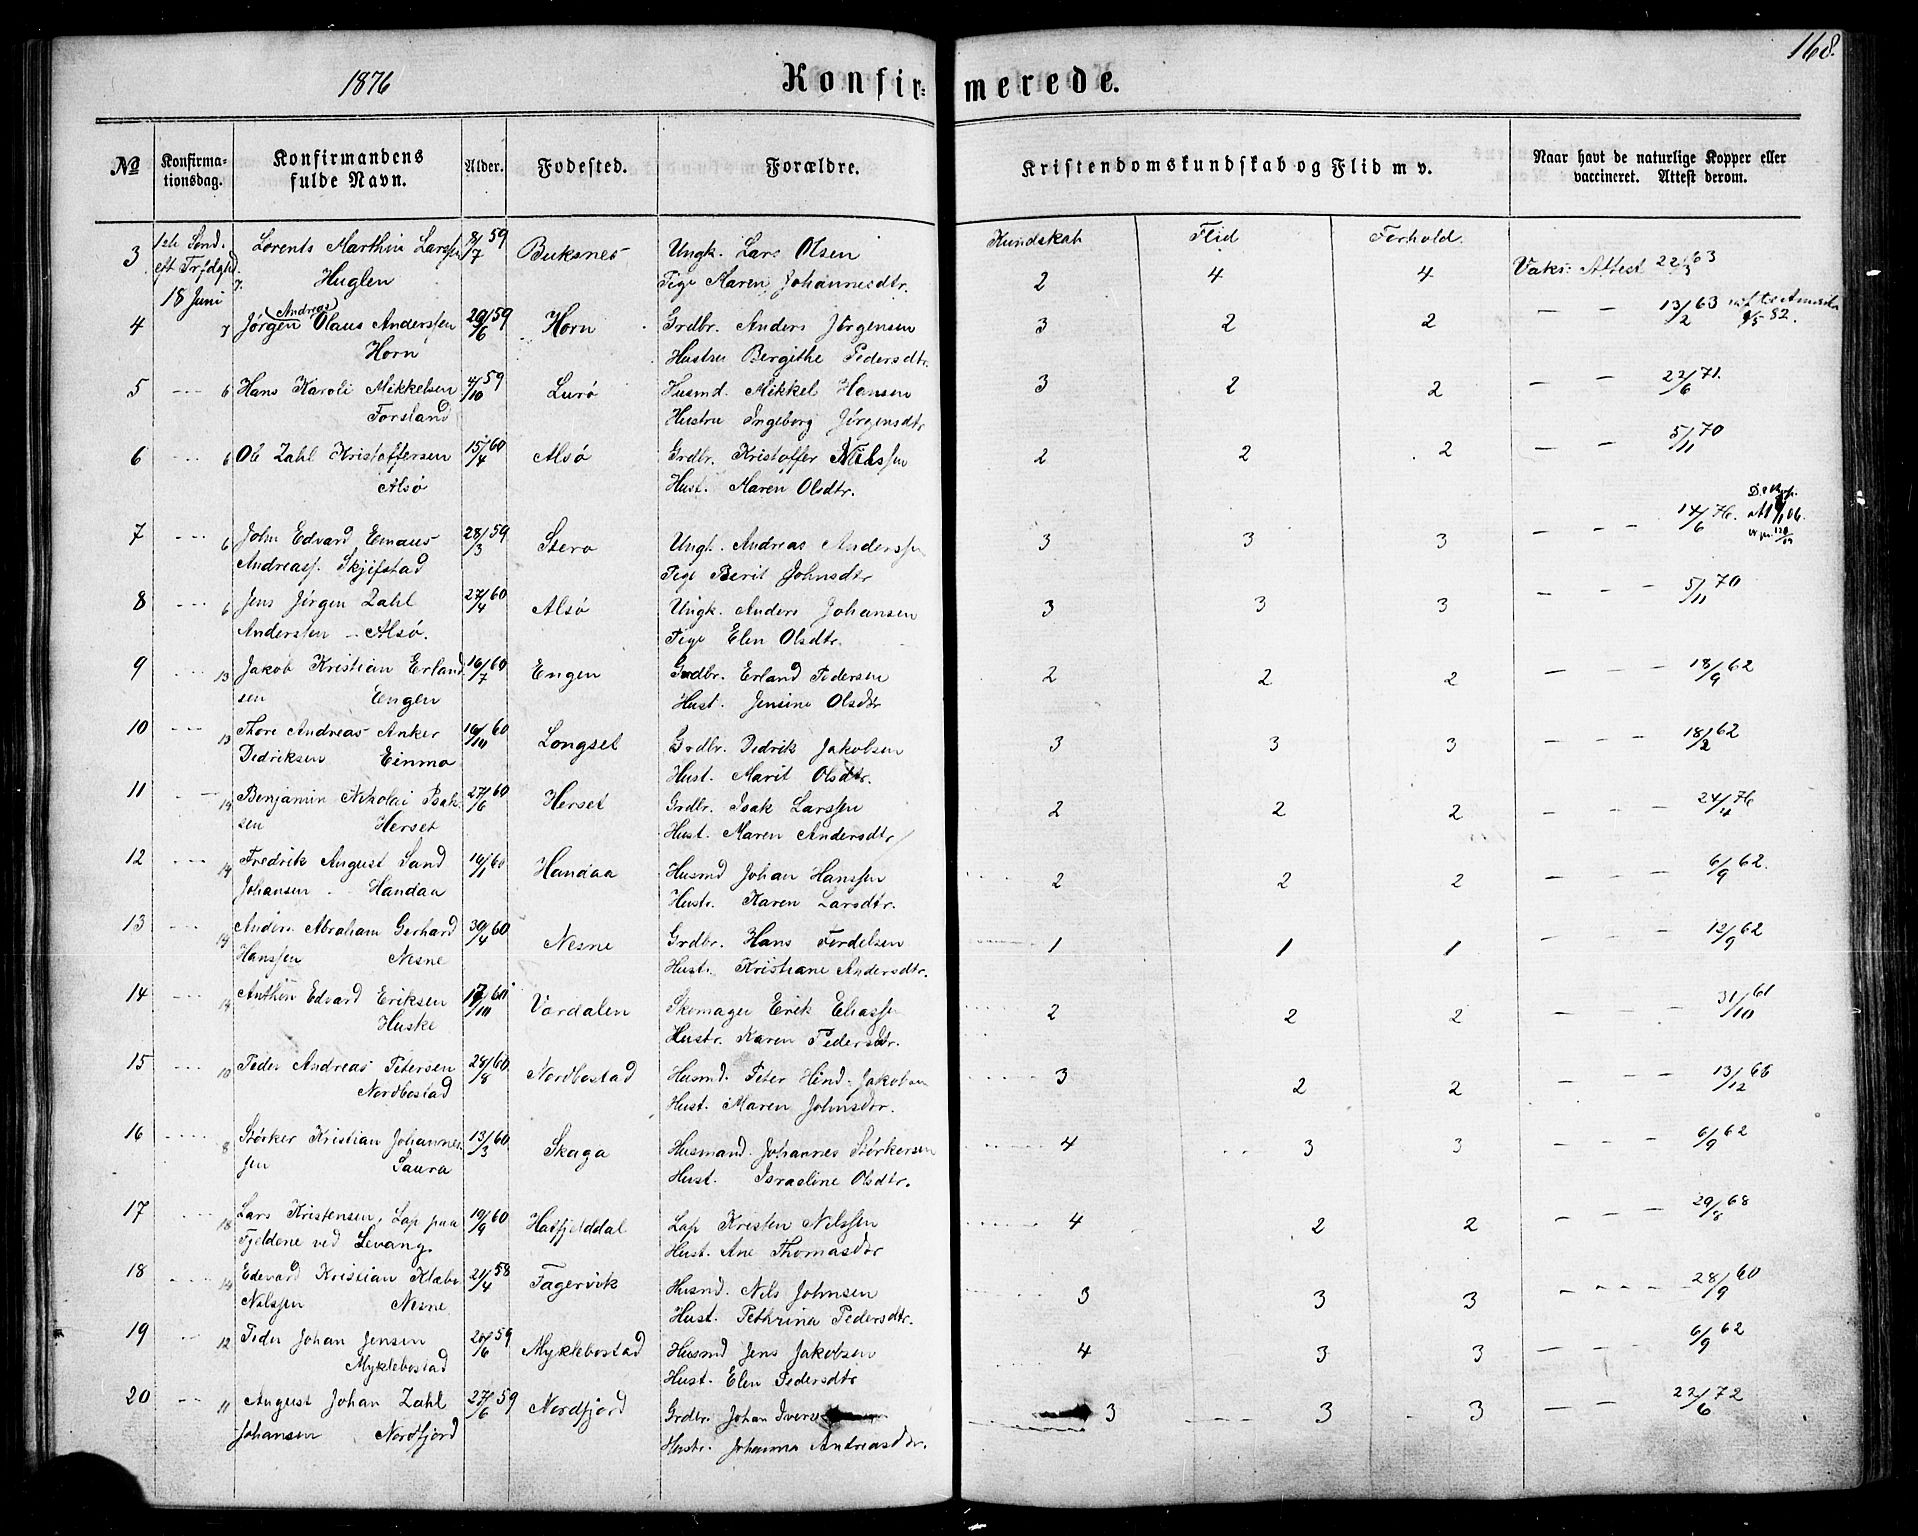 168.
1876 Konfir= merede.
№ Konfirma-tionsdag. Konfirmandens fulde Navn. Alder. Fødested. Forældre. Kristendomskundskab og Flid m v. Naar havt de naturlige Kopper eller vaccineret. Attest derom.
Kundskab Flid Forhold.
3 1ste Sønd. Lorents Marthin Larssen 8/7 59 Buksnes Ungk. Lars Olsen 2 4 4 Vaks. Attest 22/3 63
eft Trfdghd. 7. Huglen Pige Maren Johannesdtr.
18 Juni
4 7 Jørgen (Andreas) Olaus Anderssen 20/6 59 Horn Grdbr. Anders Jørgensen 3 2 2 — — 13/2 63
Horn Hustru Bergithe Pedersdtr.
5 --- 6 Hans Karoli Mikkelsen 4/10 59 Lurø Husmd. Mikkel Hansen 3 2 2 — — 22/6 71.
Forsland Hustru Ingeborg Jørgensdtr
6 --- 6 Ole Zahl Kristoffersen 15/4 60 Alsø Grdbr. Kristoffer Nilssen 2 2 2 — — 5/11 70
Alsø Hust. Maren Olsdtr.
7 --- 6 John Edvard Emaus 28/3 59 Stero Ungk. Andreas Anderssen 3 3 3 — — — 14/6 76.
Andreass. Skjifstad Pige Berit Johnsdtr
8 --- 6 Jens Jørgen Zahl 27/4 60 Alsø Ungk. Anders Johansen 3 3 3 — — — 5/11 70
Anderssen — Alsø. Pige Elen Olsdtr.
9 --- 13 Jakob Kristian Erland 16/7 60 Engen Grdbr. Erland Pedersen 2 2 2 — — — 18/9 62
sen Engen Hust. Jensine Olsdtr
10 --- 13 Thore Andreas Anker 16/10 60 Longset Grdbr. Dedrik Jakobsen 3 3 3 — — — 18/2 62
Dedriksen Einmo Hust. Marit Olsdtr.
11 --- 14 Benjamin Nikolai Isak 27/6 60 Herset Grdbr. Isak Larssen 2 2 2 — — 24/4 76
sen Herset Hust. Maren Andersdtr
12 --- 14 Fredrik August Sand 10/1 60 Handaa Husmd Johan Hanssen 2 2 2 — — — 6/9 62.
Johansen Handaa Hustr. Karen Larsdtr.
13 --- 14 Anders Abraham Gerhard 30/4 60 Nesne Grdbr. Hans Ferdelsen 1 1 1 — — — 12/9 62
Hanssen Nesne Hust. Kristiane Andersdtr.
14 --- 14 Anthon Edvard Eriksen 17/10 60 Vordalen Skomager Erik Eliassen 2 2 2 — — — 31/10 61
Huske Hustr. Karen Pedersdtr.
15 --- 10 Peder Andreas Petersen 28/8 60 Nordbostad Husmd. Peter Hind. Jakobsen 3 2 2 — — — 13/12 66
Nordbostad Hust. Maren Johnsdtr.
16 --- 8 Størker Kristian Johannes 13/3 60 Skaga Husmand. Johannes Størkersen 4 3 3 — — — 6/9 62
sen Saura Hust. Israeline Olsdtr.
17 --- 18 Lars Kristensen, Lap paa 19/9 60 Hatfjelddal Lap Kristen Nilssen 4 2 2 — — — 29/8 68
Fjeldene ved Levang. Hust. Ane Thomasdtr
18 --- 14 Edevard Kristian Klæbo 21/4 58 Fagervik Husmd. Nils Johnsen 3 3 3 — — — 28/9 60
Nilssen Nesne Hust. Pethrina Pedersdtr.
19 --- 12 Peder Johan Jensen 20/6 59 Myklebostad Husmd Jens Jakobsen 4 3 3 — — — 6/9 62
Myklebostad Hust. Elen Pedersdtr
20 --- 11 August Johan Zahl 27/6 59 Nordfjord Grdbr. Johan 3 3 3 — — — 22/6 72
Johansen Nordfjord Hustr. Johanna Andreasdtr.